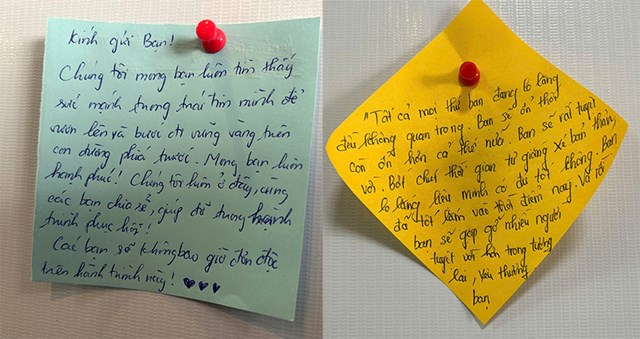 Kính gửi Bạn!
Chúng tôi mong bạn luôn tìm thấy
sức mạnh trong trái tim mình để
vươn lên và bước đi vững vàng trên
con đường phía trước. Mong bạn luôn
hạnh phúc! Chúng tôi luôn ở đây, cùng
các bạn chia sẻ, giúp đỡ trong hành
trình phục hồi!
Các bạn sẽ không bao giờ đơn độc
trên hành trình này!
"Tất cả mọi thứ bạn đang lo lắng
đều không quan trọng. Bạn sẽ ổn thôi
còn ổn hơn cả thế nữa. Bạn sẽ rất tuyệt
vời. Bớt chút thời gian tự giằng xé bản thân,
lo lắng liệu mình có đủ tốt không. Bạn
đã tốt lắm vào thời điểm này. Và rồi
bạn sẽ gặp gỡ nhiều người
tuyệt vời hơn trong tương
lai, yêu thương
bạn